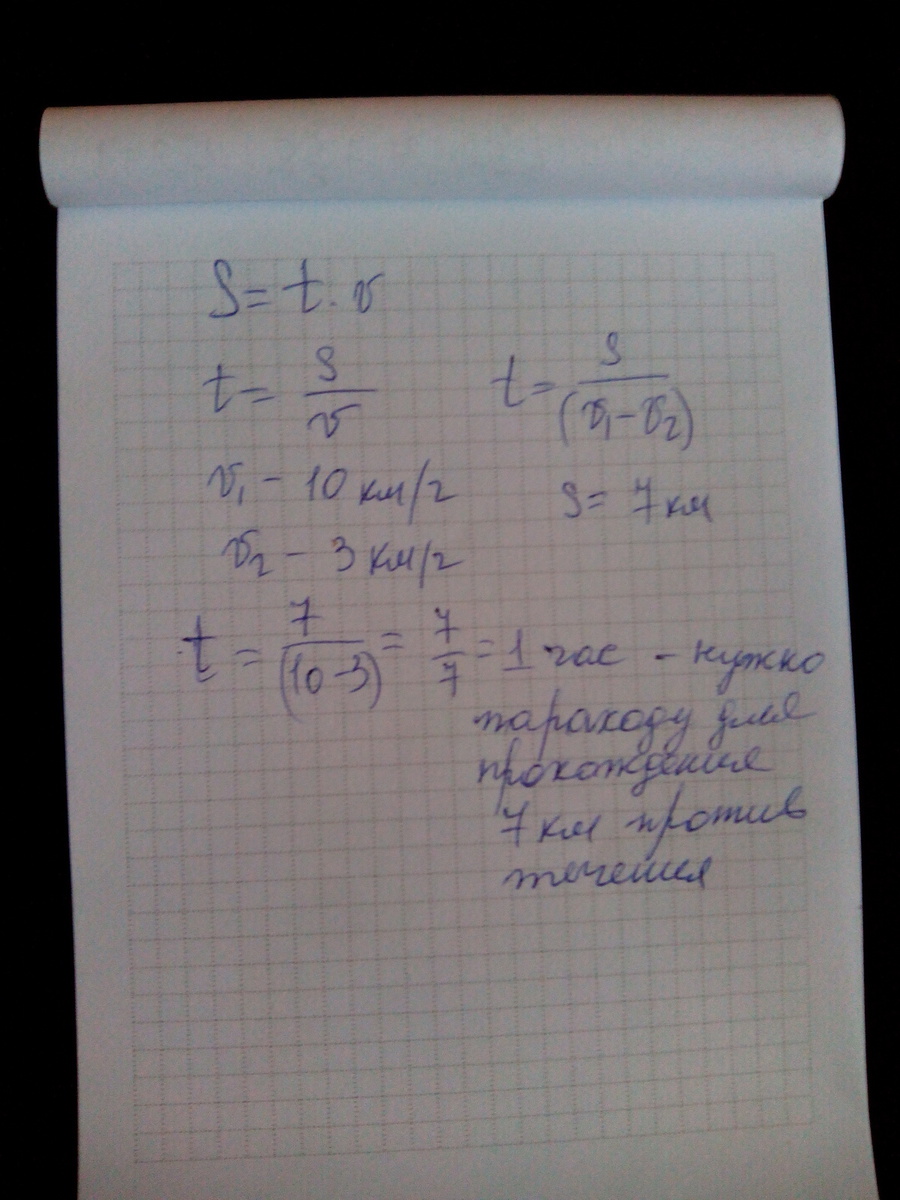 S = t · v
t = S/v t = S/(v₁ - v₂)
v₁ - 10 км/ч S = 7 км
v₂ - 3 км/ч
t = 7/(10-3) = 7/7 = 1 час - нужно
пароходу для
прохождения
7 км против
течения